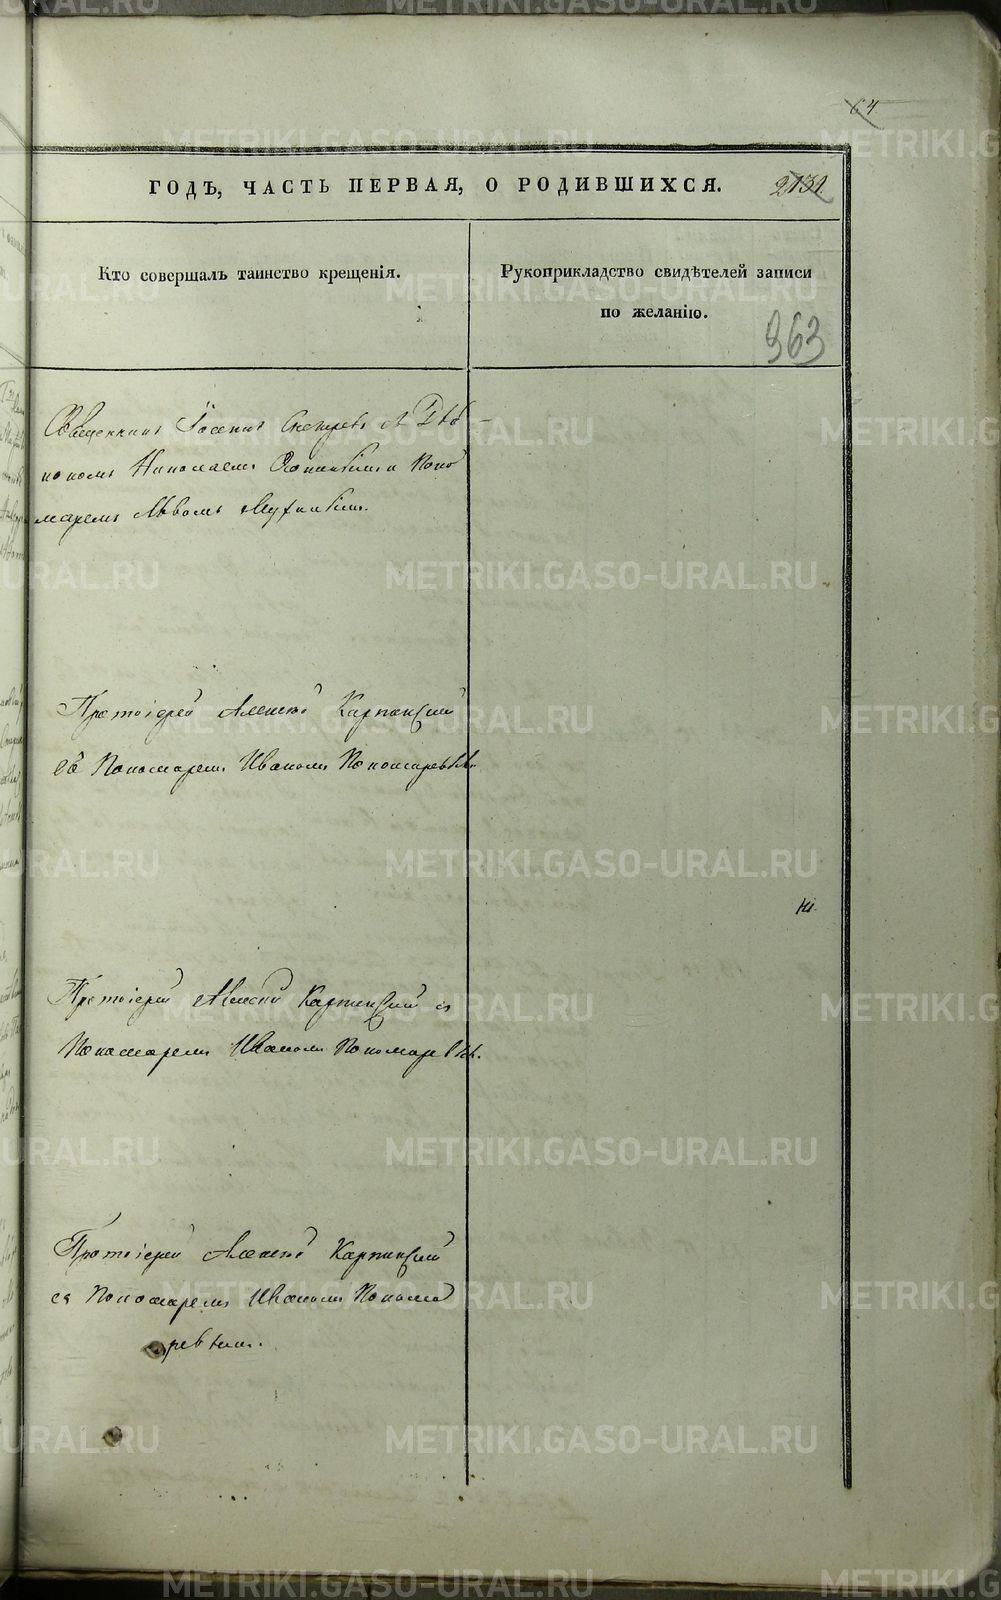 64
ГОДЪ, ЧАСТЬ ПЕРВАЯ, О РОДИВШИХСЯ. 2131
Кто совершалъ таинство крещенія.
Рукоприкладство свидѣтелей записи
по желанію.
363
Священникъ Іосифъ съ Діа
кономъ Николаемъ и Поно
маремъ Львомъ
Протоіерей Алексѣй Карпинскій
съ Пономаремъ Иваномъ Пономаревымъ
Протоіерей Алексій Карпинскій съ
Пономаремъ Иваномъ Пономаревым.
Протоіерей Алексѣй Карпинскій
съ Пономаремъ Иваномъ Понома
ревымъ.
METRIKI.GASO-URAL.RU